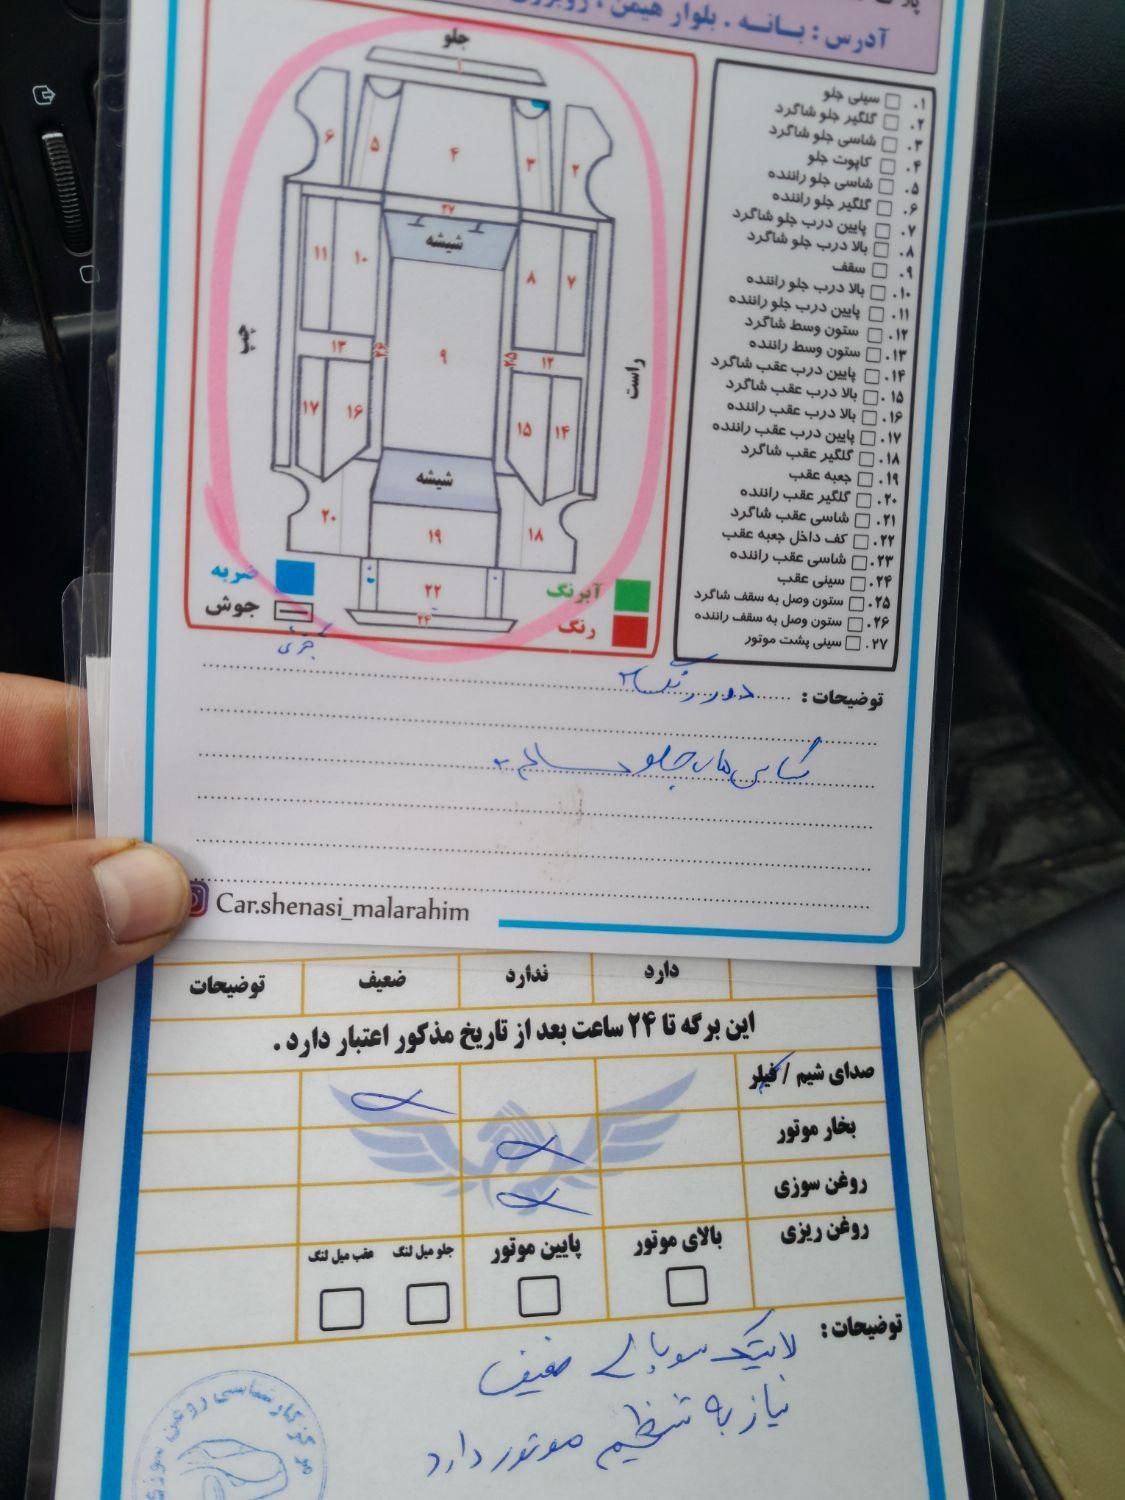 آدرس : بـانـه . بلوار هیمن ، روبروی
جلو
۱
۶
۵
۴
۳
۲
۲۷
شیشه
۱۱
۱۰
۸
۷
چپ
۱۳
۲۶
۹
۲۵
۱۲
راست
۱۷
۱۶
۱۵
۱۴
شیشه
۲۰
۱۹
۱۸
۲۲
۲۴
ضربه
جوش
آبرنگ
رنگ
۱. سینی جلو
۲. گلگیر جلو شاگرد
۳. شاسی جلو شاگرد
۴. کاپوت جلو
۵. شاسی جلو راننده
۶. گلگیر جلو راننده
۷. پایین درب جلو شاگرد
۸. بالا درب جلو شاگرد
۹. سقف
۱۰. بالا درب جلو راننده
۱۱. پایین درب جلو راننده
۱۲. ستون وسط شاگرد
۱۳. ستون وسط راننده
۱۴. پایین درب عقب شاگرد
۱۵. بالا درب عقب شاگرد
۱۶. بالا درب عقب راننده
۱۷. پایین درب عقب راننده
۱۸. گلگیر عقب شاگرد
۱۹. جعبه عقب
۲۰. گلگیر عقب راننده
۲۱. شاسی عقب شاگرد
۲۲. کف داخل جعبه عقب
۲۳. شاسی عقب راننده
۲۴. سینی عقب
۲۵. ستون وصل به سقف شاگرد
۲۶. ستون وصل به سقف راننده
۲۷. سینی پشت موتور
توضیحات : دور رنگ
جلو سالم
Car.shenasi_malarahim
دارد ندارد ضعیف توضیحات
این برگه تا ۲۴ ساعت بعد از تاریخ مذکور اعتبار دارد .
صدای شیم / فیلر
بخار موتور
روغن سوزی
روغن ریزی بالای موتور پایین موتور جلو میل لنگ عقب میل لنگ
توضیحات :
لاستیک سوپاپ ضعیف
نیاز به تنظیم موتور دارد
مرکز کارشناسی روغن سوزی